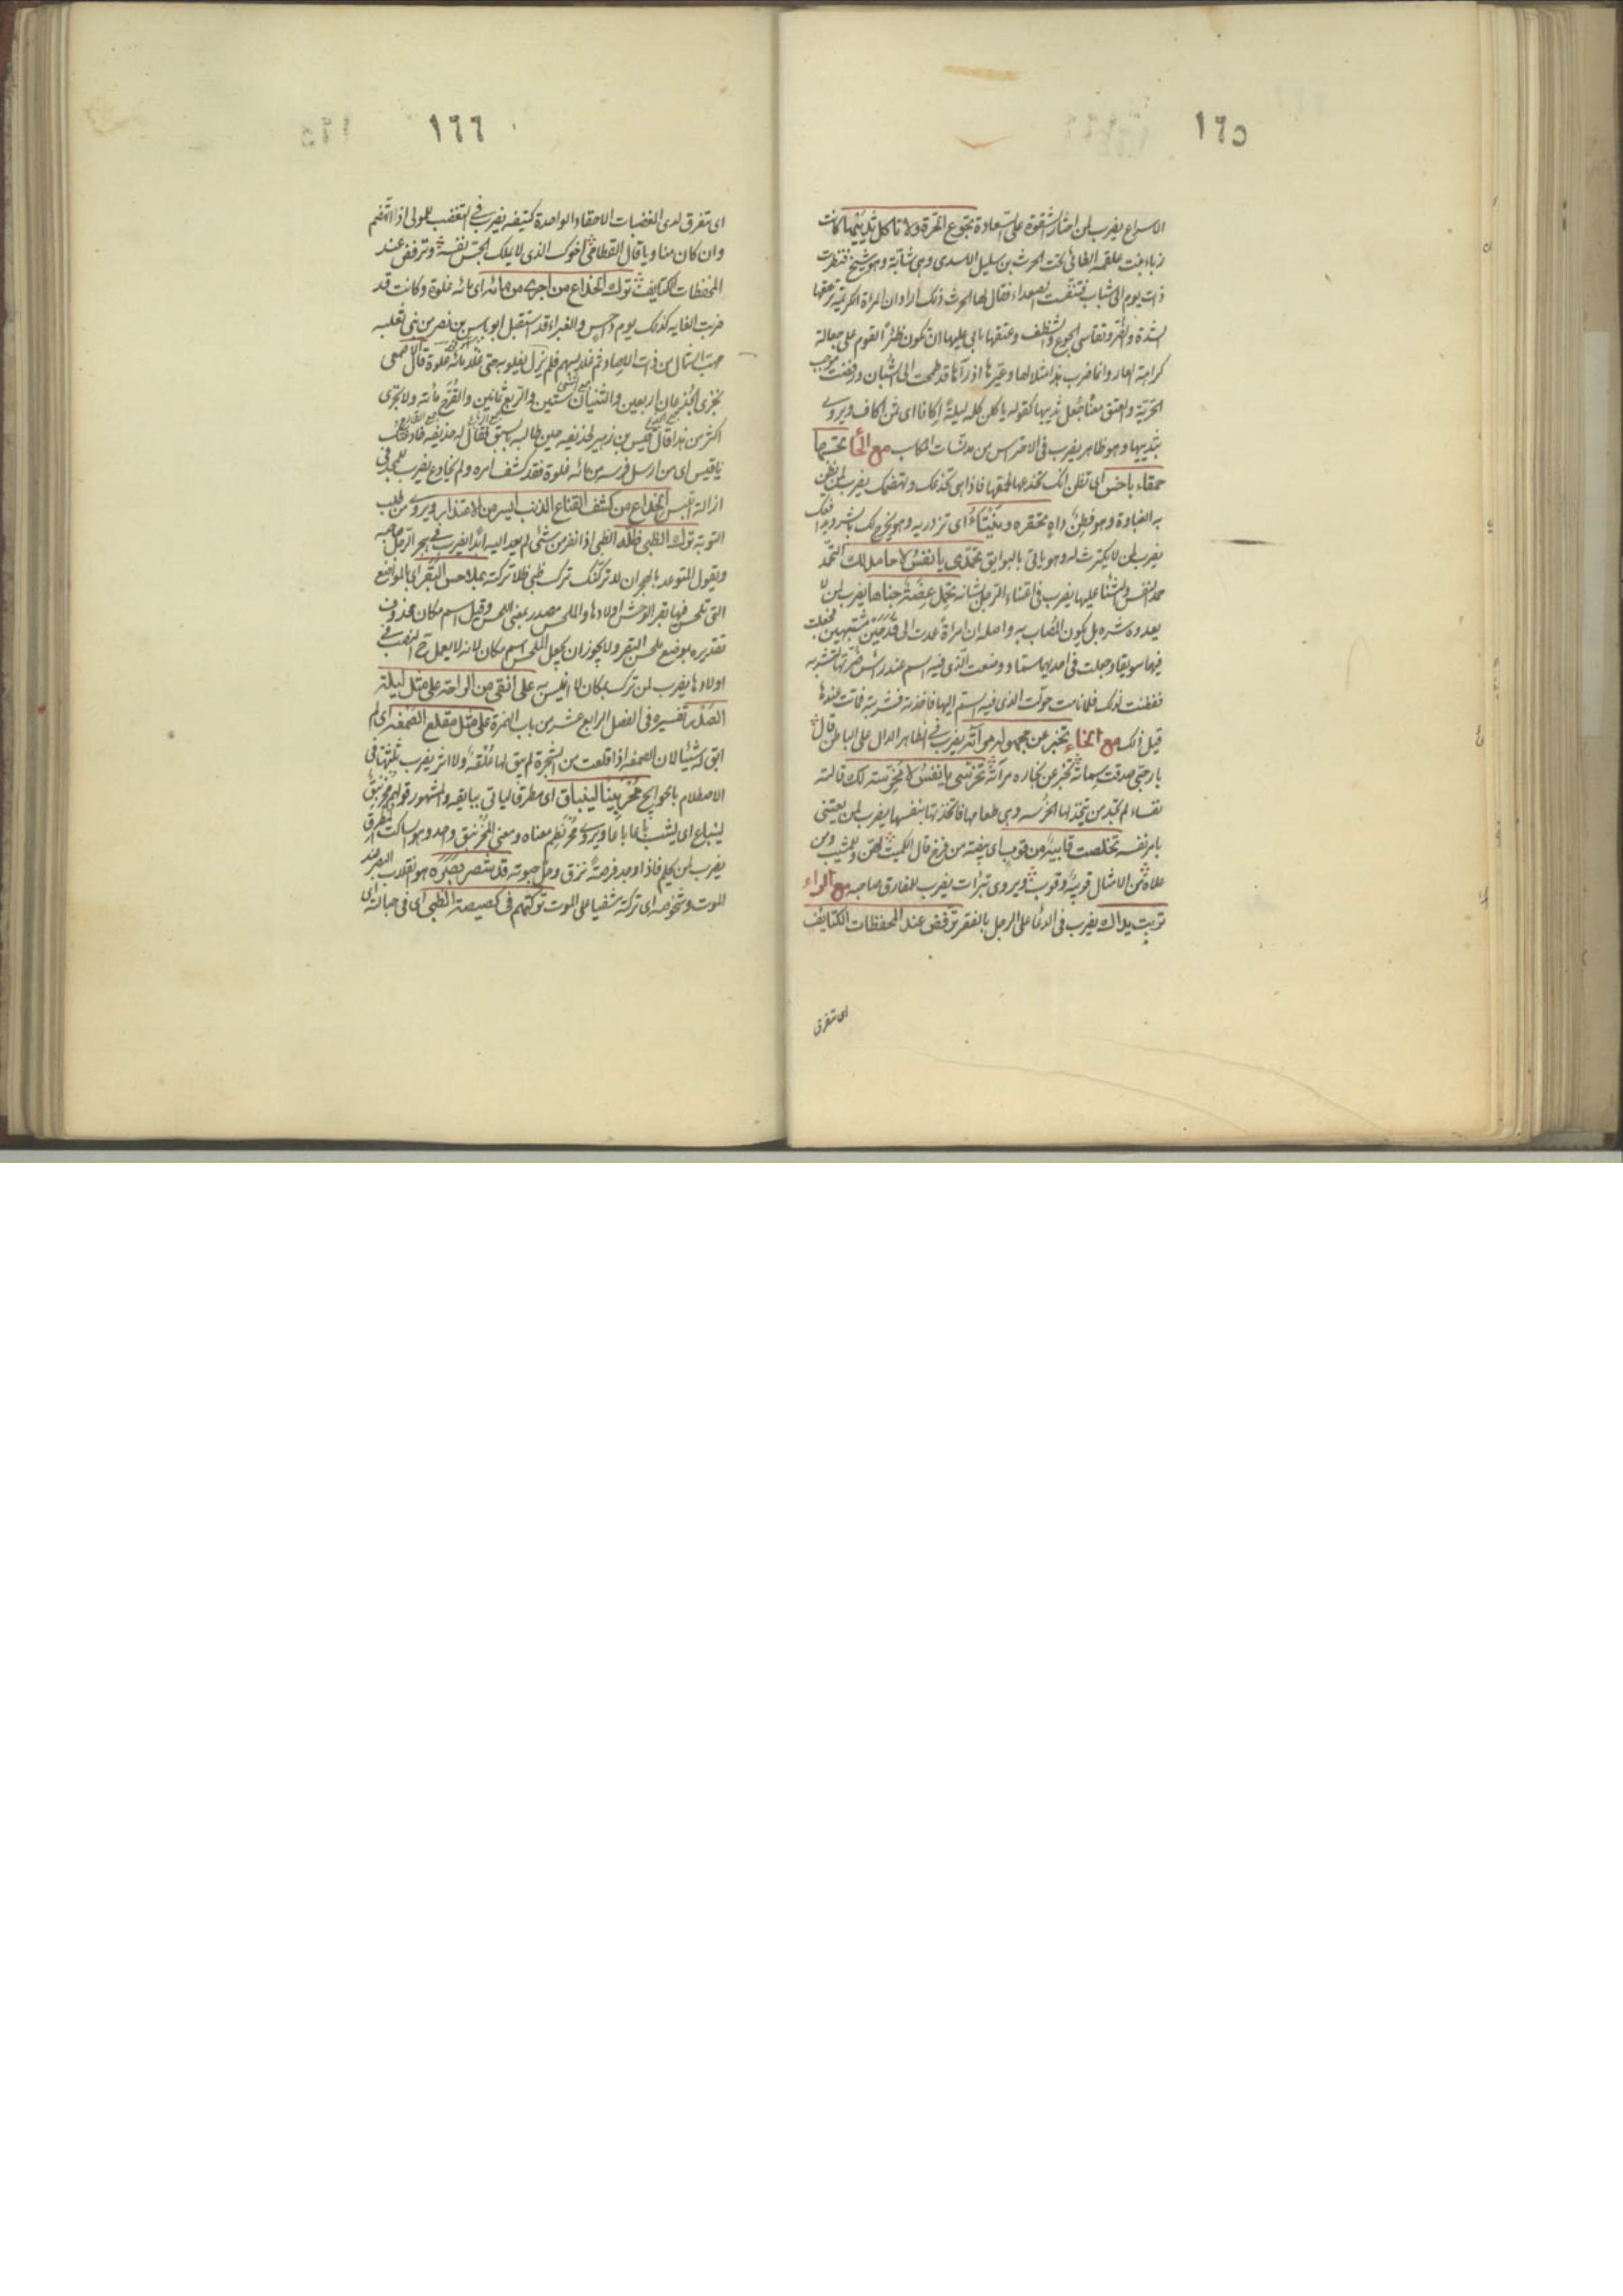 ١٦٥
الاسراع يضرب لمن اختار الشقوة على السعادة تجوع الحرة ولا تاكل ثدييها كانت
زباء بنت علقمه الطائى تحت الحرث بن سليل الاسدى وهى شابة وهو شيخ فنظرت
ذات يوم الى شباب فتنفست الصعداء فقال لها الحرث ذلك اراد ان المرأة الكريمة
الشدة والضر وتقاسى الجوع والشظف وعتقها يابى عليها ان تكون ظئرا لقوم على جعالة
كراهة العار وانما ضرب هذا مثلا لها وعيرها اذ رآها قد طمحت الى الشبان ورفضت
الحرية والعتق معنا جعل ثدييها كقوله ياكلن كل ليلة اكافا اى ثمن اكاف ويروى
بثدييها وهو ظاهر يضرب فى الاحتراس من مدنسات المكاسب مع الحا تحسبها
حمقاء باخس اى تظن انك تخدعها لحمقها فاذا هى تخدعك وتهضمك يضرب لمن يظن
به الغباوة وهو فطن داه تحقره وينتاء اى تزدريه وهو يخرج لك بالشر
يضرب لمن لا يكترث له وهو ياتى بالبوايق تحمدى يا نفس لا حامد لك التحمد
حمد النفس والثناء عليها يضرب فى اعتناء الرجل بشانه تحمل عضة جناها يضرب لمن لا
يعدوه شره بل يكون المصاب به واصله ان امرأة عمدت الى قدحين مشتبهين فجعلت
فيهما سويقا وجعلت فى احديهما سما ووضعت الذى فيه السم عند راس ضرتها لتشربه
ففطنت لذلك فلما نامت حولت الذى فيه السم اليها فاخذته فشربته فماتت
قيل ذلك مع الخاء تخبر عن مجهوله مرآته يضرب فى الظاهر الدال على الباطن قال
يا رجى صدقت سماته تخبر عن اخباره مرآته تخرسى يا نفس لا مخرسة لك قالته
نفساء لم تجد من يتخذ لها الخرسه وهى طعامها فاتخذتها بنفسها يضرب لمن يعتنى
بامر نفسه تخلصت قايبة من قوب اى بيضة من فرخ قال الكميت لهن وللمشيب ومن
علاه من الامثال قايبة وقوب ويروى تبرات يضرب للمفارق صاحبه مع الراء
تربت يداك يضرب فى الدعا على الرجل بالفقر ترفض عند المحفظات الكتايف
اى تتفرق
١٦٦
اى تتفرق لدى الغضبات الاحقاد الواحدة كتيفه يضرب فى التغضب للمولى اذا اهتضم
وان كان مناويا قال القطامى اخوك الذى لا يملك الحس نفسه وترفض عند
المحفظات الكتايف ترك الخداع من اجرى من مائه اى مائه غلوة وكانت قد
ضربت الغايه كذلك يوم داحس والغبراء قد استقبل ابو ياس بن نصر من بنى ثعلبه
مهب الشمال من ذات الاصاد ثم غلا بسهم فلم يزل يغلو به حتى غلا مائة غلوة قال الاصمعى
تجرى الجذعان اربعين والثنيان ستين والربع ثمانين والقرح مائة ولا تجرى
اكثر من هذا قال قيس بن زهير لحذيفه حين طالبه بالسبق فقال له حذيفه خادعتك
يا قيس اى من ارسل فرسه من مائه غلوة فقد كشف امره ولم يخادع يضرب للمجد فى
ازالة اللبس ترك الخداع من كشف القناع الذنب ايسر من الاعتذار ويروى من طلب
التوبة ترك الظبى ظله الظبى اذا نفر من شئ لم يعد اليه ابدا يضرب فى هجر الرجل صاحبه
ويقول المتوعد بالهجران لا تركنك ترك ظبى ظله تركته بملاحس البقر اى بالمواضع
التى تلحس فيها بقر الوحش اولادها والملحس مصدر بمعنى اللحس وقيل اسم مكان محذوف
تقديره بموضع ملحس البقر ولا يجوز ان يجعل الملحس اسم مكان لانه لا يعمل ح النصب فى
اولادها يضرب لمن ترك بمكان لا انيس به على انقى من الراحة على مثل ليلة
الصدر تفسيره فى الفصل الرابع عشر من باب الهمزة على مثل مقلع الصمغة اى لم
ابق له شيئا لان الصمغه اذا اقلعت من الشجرة لم يبق لها علقة ولا اثر يضرب ثلثتها فى
الاصطلام بالحوايج مخرنبقا لينباق اى مطرقا لياتى ببايقه والمشهور قولهم مخرنبق
لينباع اى ليثب باعا باعا ويروى مخرنطم معناه ومعنى المخرنبق واحد وهو الساكت المطرق
يضرب لمن يحلم فاذا وجد فرصة نزق وحل حبوته قد شصر بصره هو انقلاب البصر عند
الموت وشخوصه اى تركته مشفيا على الموت تركتهم فى كصيصة الظبى اى فى حبالة اى